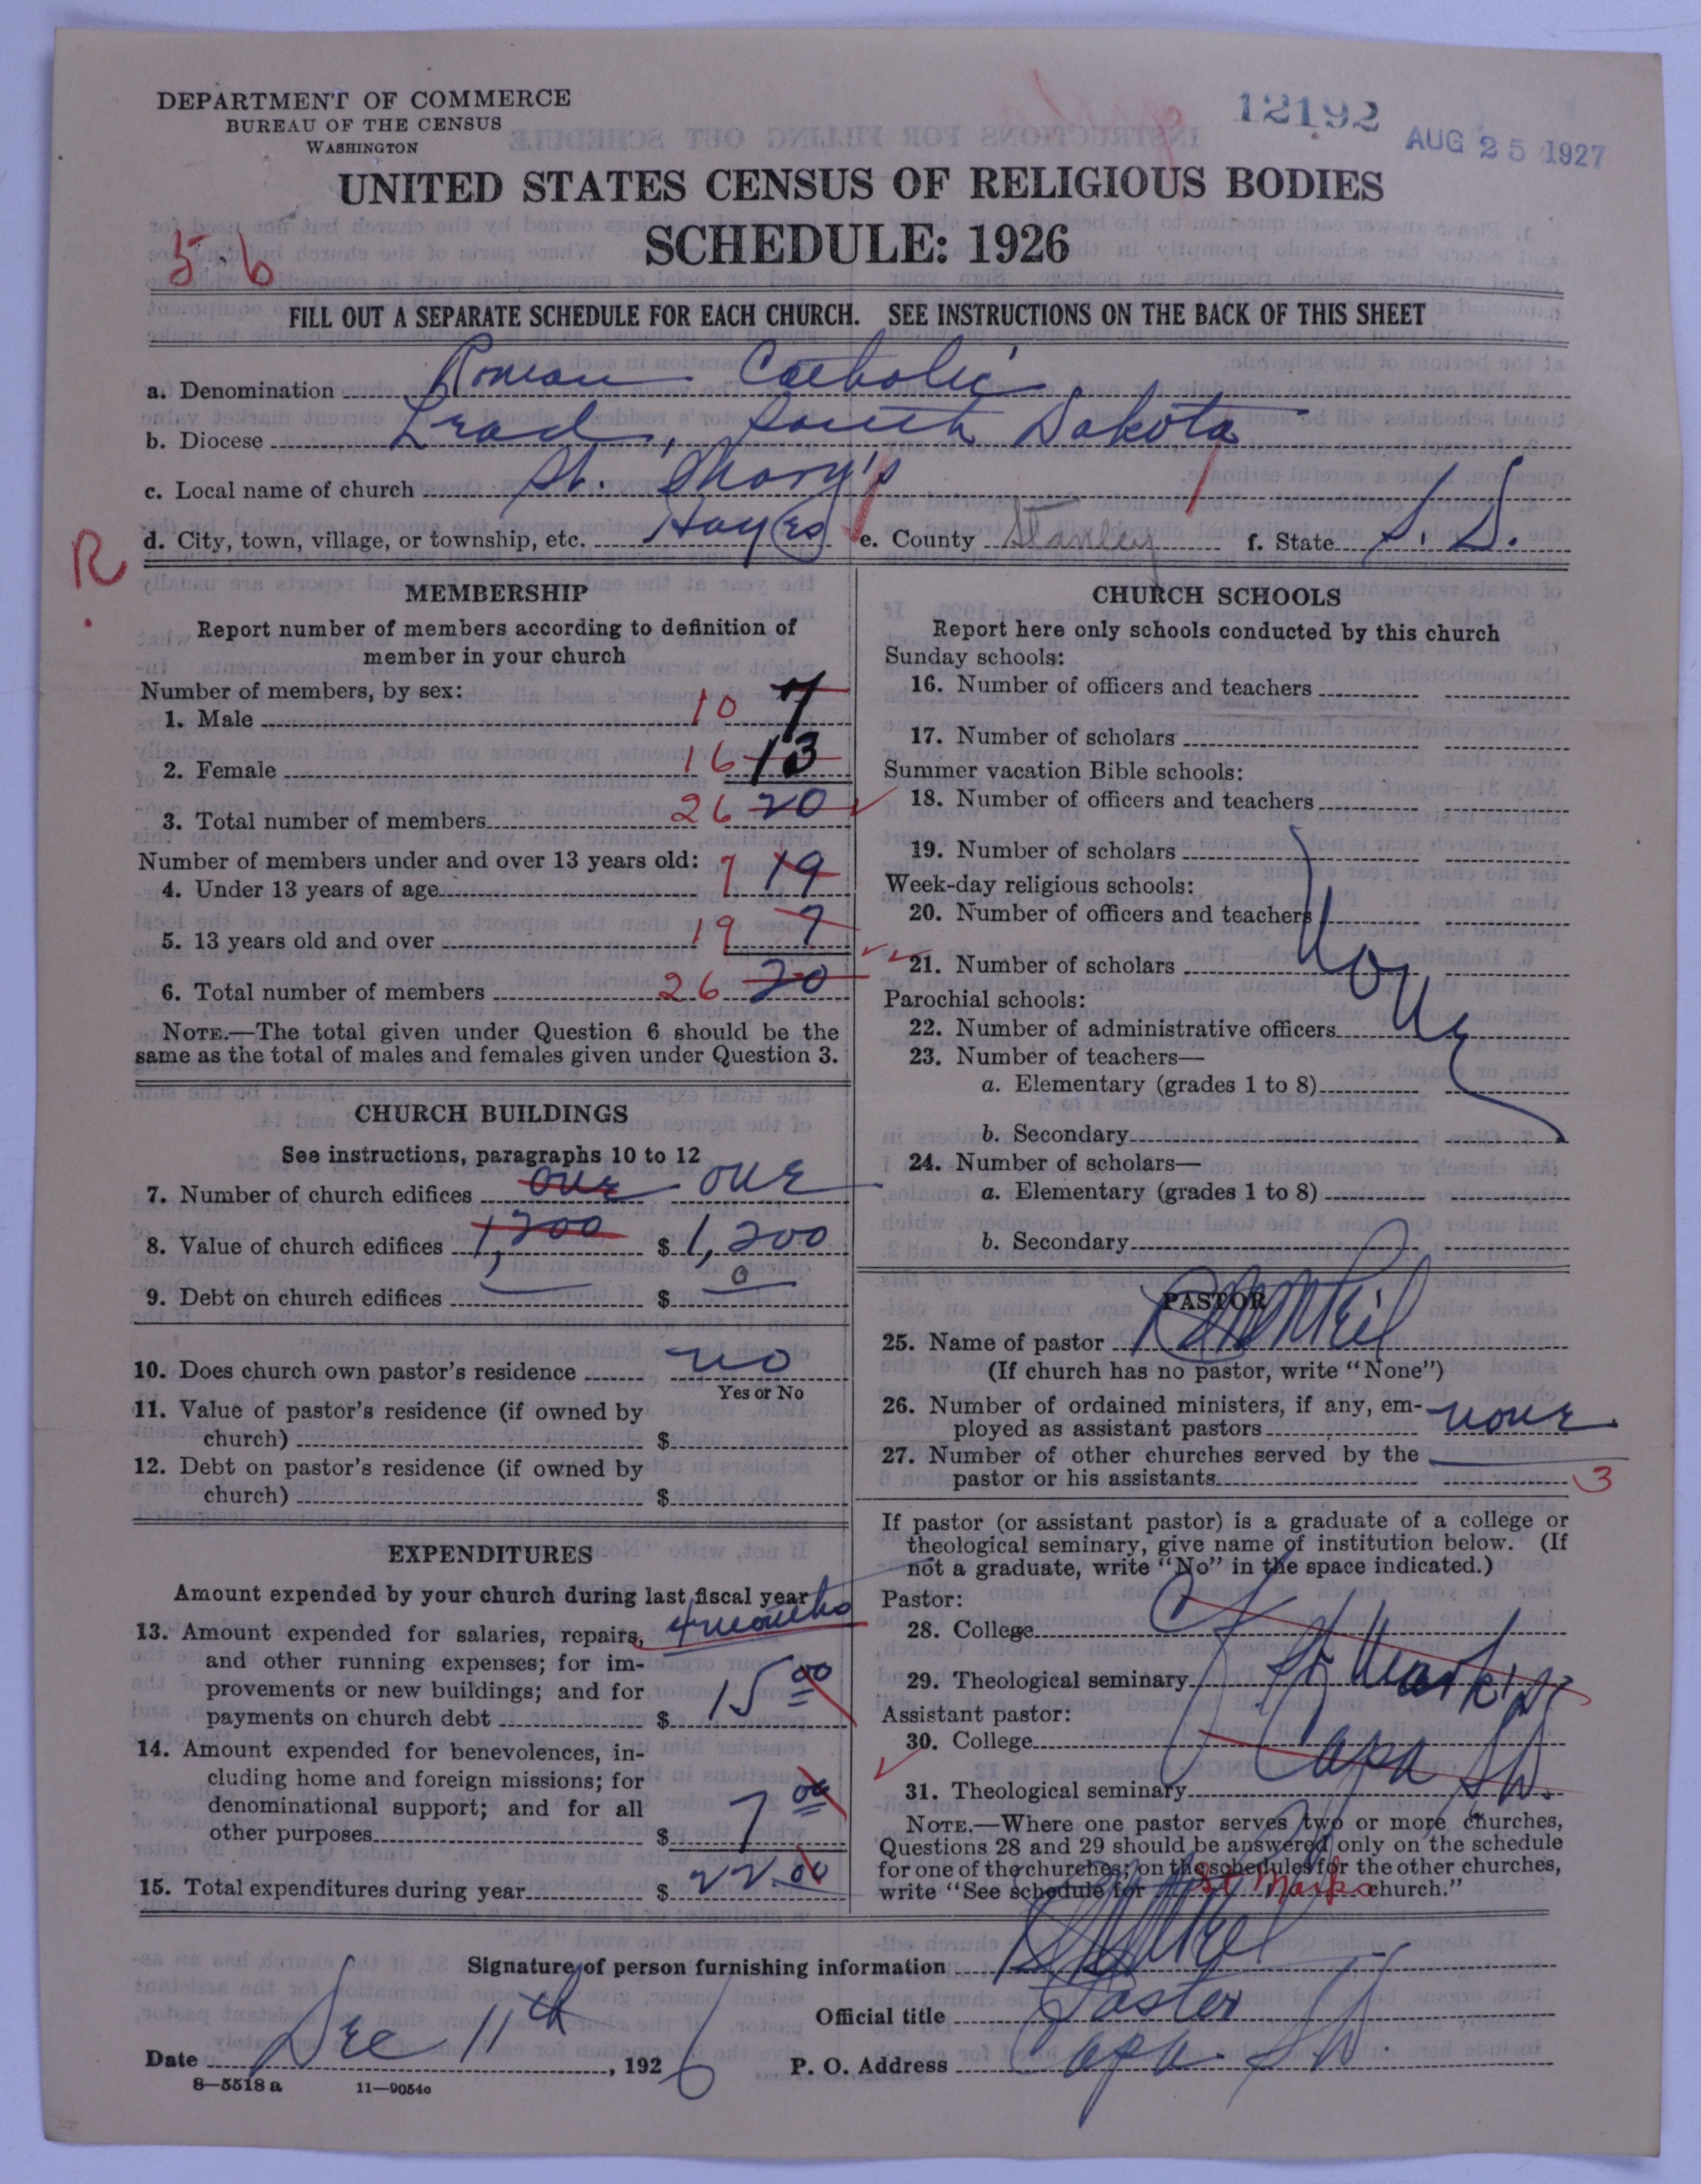 DEPARTMENT OF COMMERCE
BUREAU OF THE CENSUS
WASHINGTON
12192
AUG 25 1927
UNITED STATES CENSUS OF RELIGIOUS BODIES
SCHEDULE: 1926
5-6
FILL OUT A SEPARATE SCHEDULE FOR EACH CHURCH. SEE INSTRUCTIONS ON THE BACK OF THIS SHEET
a. Denomination Roman Catholic
b. Diocese Lead, South Dakota
c. Local name of church St. Mary's
d. City, town, village, or township, etc. Hayes e. County Stanley f. State S. D.
R.
MEMBERSHIP
Report number of members according to definition of
member in your church
Number of members, by sex:
1. Male 10 7
2. Female 16 13
3. Total number of members 26 20
Number of members under and over 13 years old:
4. Under 13 years of age 7 19
5. 13 years old and over 19 7
6. Total number of members 26 20
NOTE.—The total given under Question 6 should be the
same as the total of males and females given under Question 3.
CHURCH BUILDINGS
See instructions, paragraphs 10 to 12
7. Number of church edifices one one
8. Value of church edifices 1,200 $ 1,200
9. Debt on church edifices $ 0
10. Does church own pastor's residence no
Yes or No
11. Value of pastor's residence (if owned by
church) $
12. Debt on pastor's residence (if owned by
church) $
EXPENDITURES
Amount expended by your church during last fiscal year
4 months
13. Amount expended for salaries, repairs,
and other running expenses; for im-
provements or new buildings; and for
payments on church debt $ 15 00
14. Amount expended for benevolences, in-
cluding home and foreign missions; for
denominational support; and for all
other purposes $ 7 00
15. Total expenditures during year $ 22.00
CHURCH SCHOOLS
Report here only schools conducted by this church
Sunday schools:
16. Number of officers and teachers
17. Number of scholars
Summer vacation Bible schools:
18. Number of officers and teachers
19. Number of scholars
Week-day religious schools:
20. Number of officers and teachers
21. Number of scholars
None
Parochial schools:
22. Number of administrative officers
23. Number of teachers—
a. Elementary (grades 1 to 8)
b. Secondary
24. Number of scholars—
a. Elementary (grades 1 to 8)
b. Secondary
PASTOR
25. Name of pastor
(If church has no pastor, write "None")
26. Number of ordained ministers, if any, em-
ployed as assistant pastors none
27. Number of other churches served by the
pastor or his assistants 3
If pastor (or assistant pastor) is a graduate of a college or
theological seminary, give name of institution below. (If
not a graduate, write "No" in the space indicated.)
Pastor:
28. College
29. Theological seminary St Mark's
Assistant pastor:
30. College Capa S D.
31. Theological seminary
NOTE.—Where one pastor serves two or more churches,
Questions 28 and 29 should be answered only on the schedule
for one of the churches; on the schedules for the other churches,
write "See schedule for St Marks church."
Signature of person furnishing information
Official title Pastor
Date Dec 11th, 1926 P. O. Address Capa S D.
8—5518 a 11—9054o